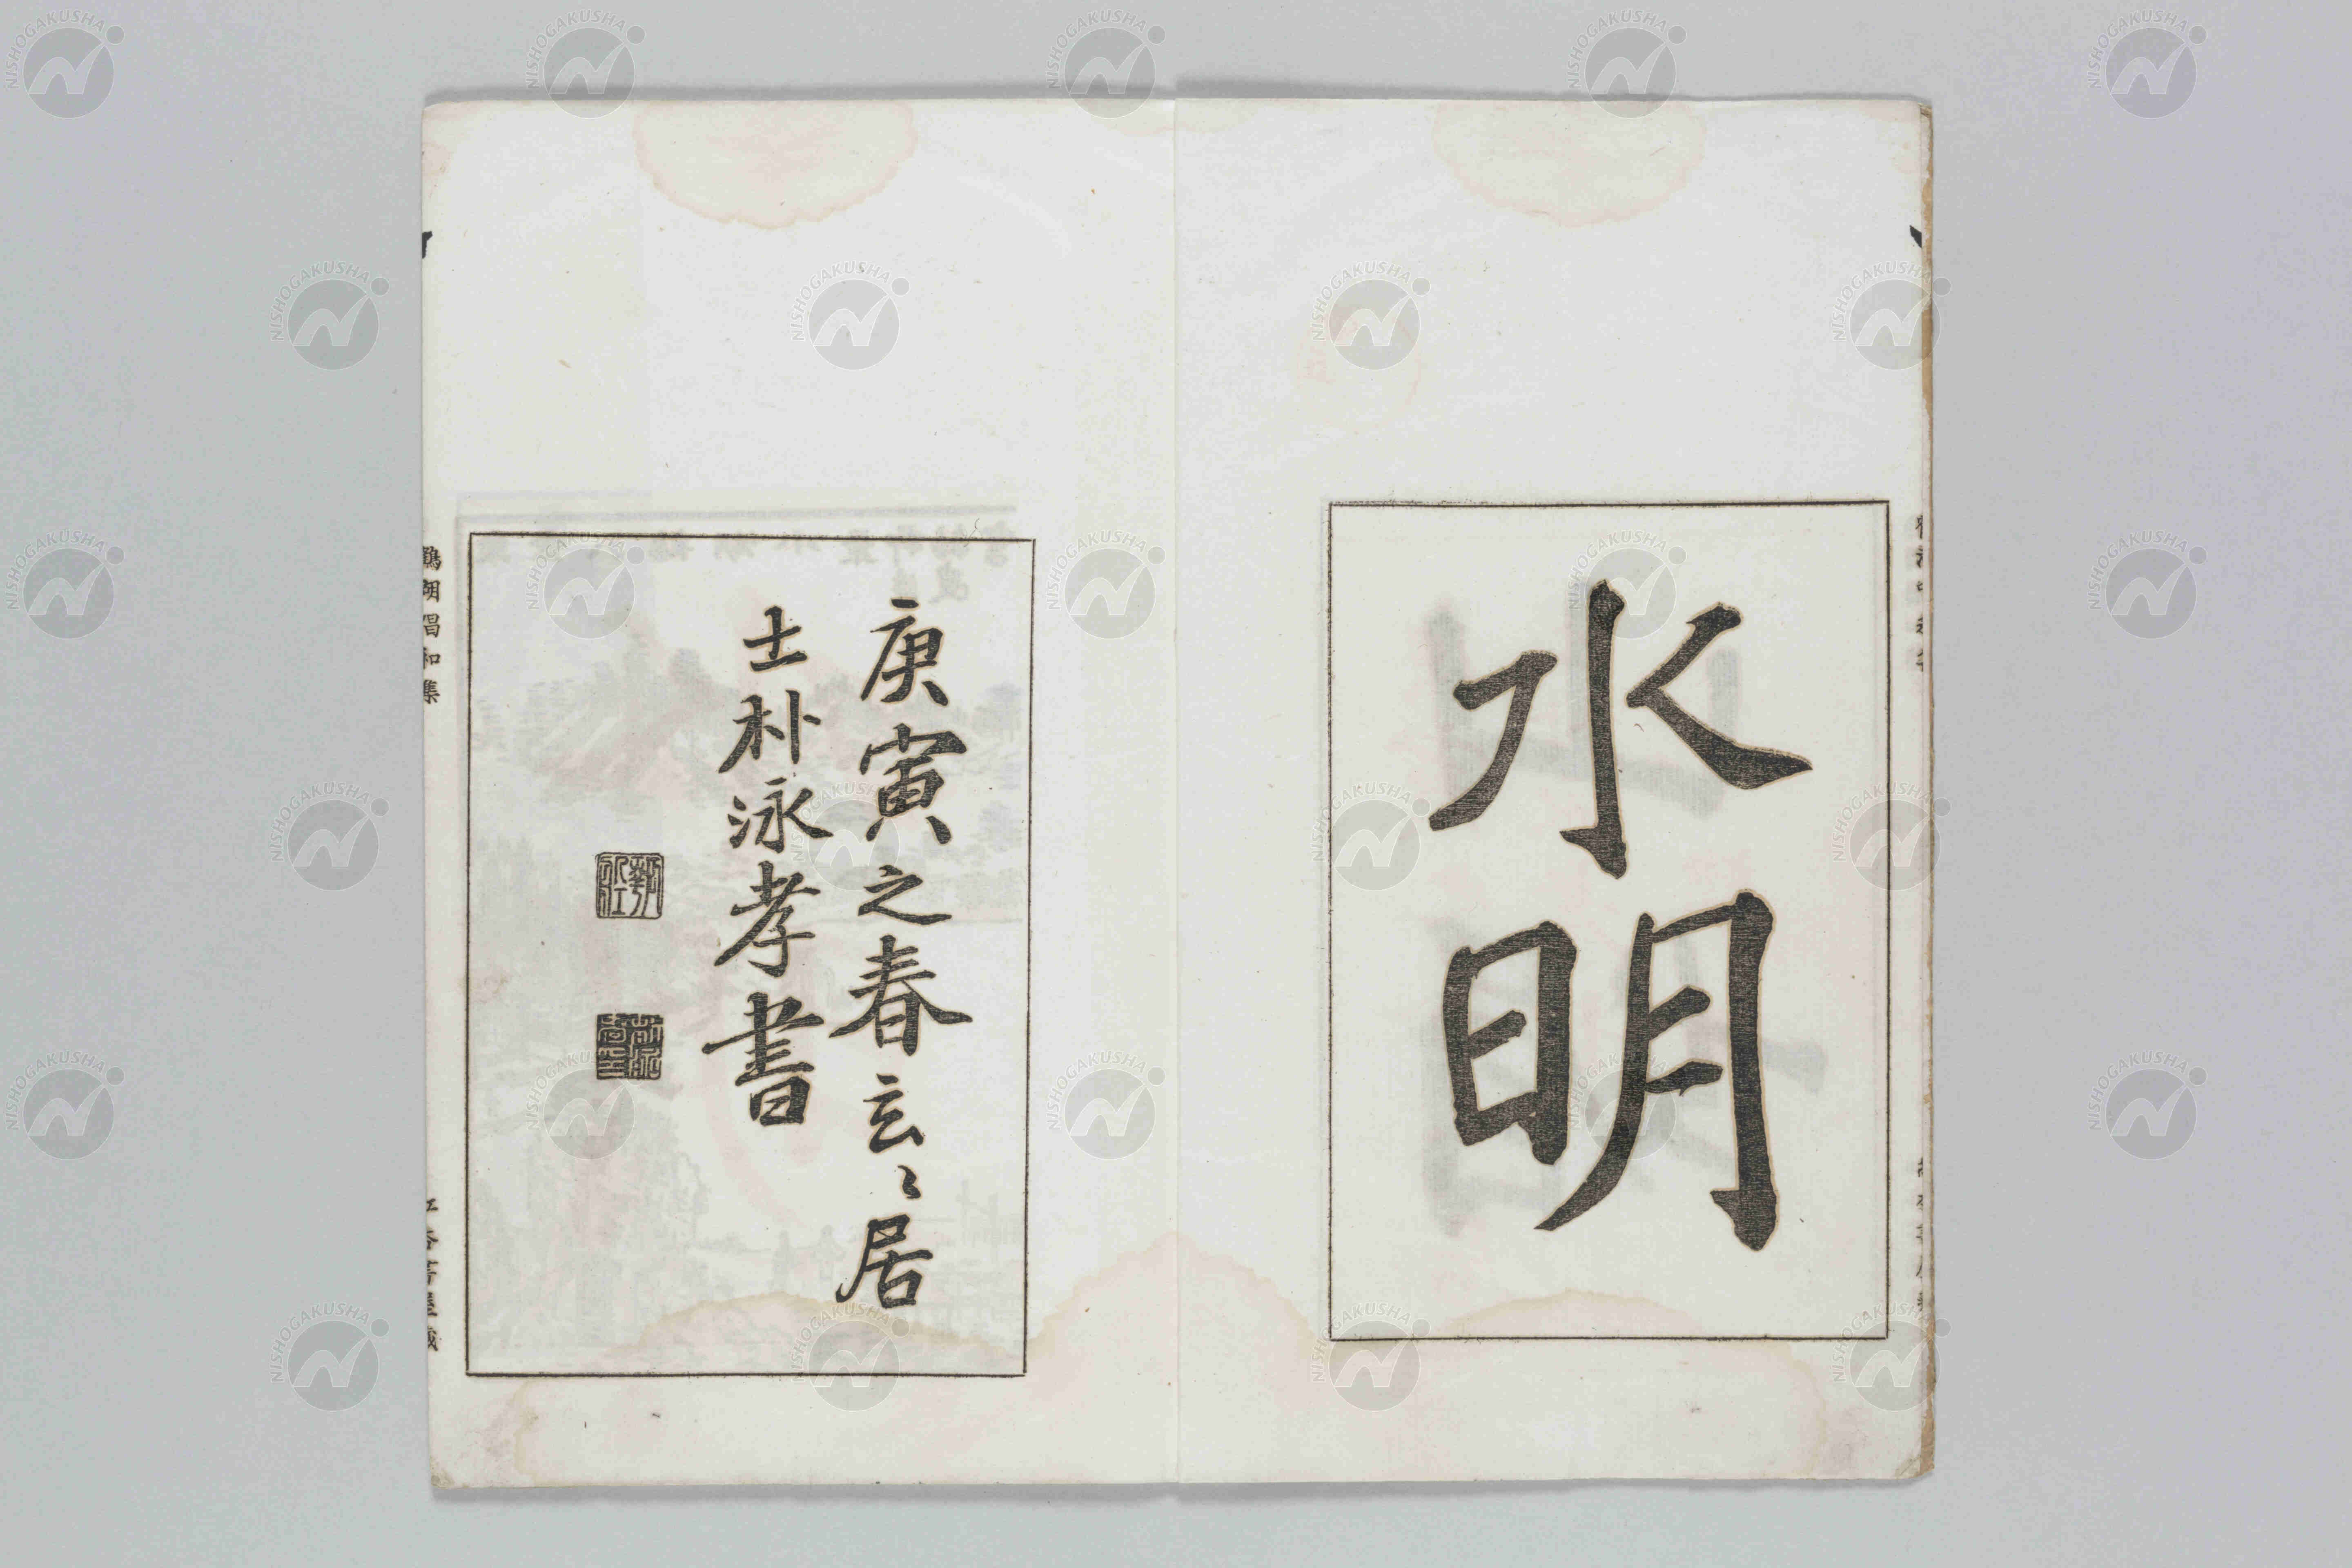 水明
庚寅之春玄〻居
士朴泳孝書
唱和集
NISHOGAKUSHA